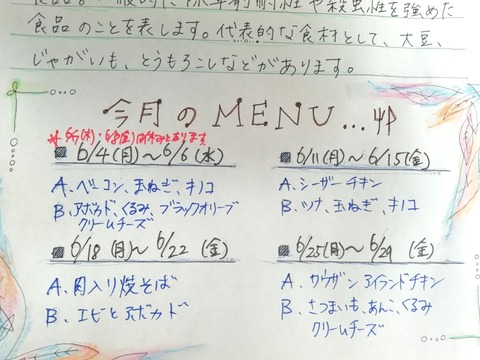 食品のことを表します。代表的な食材として、大豆、
じゃがいも、とうもろこしなどがあります。
今月のMENU...
* 6/7(木)・6/8(金)は休みとなります
6/4(月)〜6/6(水)
A. ベーコン、玉ねぎ、キノコ
B. アボカド、くるみ、ブラックオリーブ
クリームチーズ
6/11(月)〜6/15(金)
A. シーザーチキン
B. ツナ、玉ねぎ、キノコ
6/18(月)〜6/22(金)
A. 肉入り焼そば
B. エビとアボカド
6/25(月)〜6/29(金)
A. サウザンアイランドチキン
B. さつまいも、あんこ、くるみ
クリームチーズ